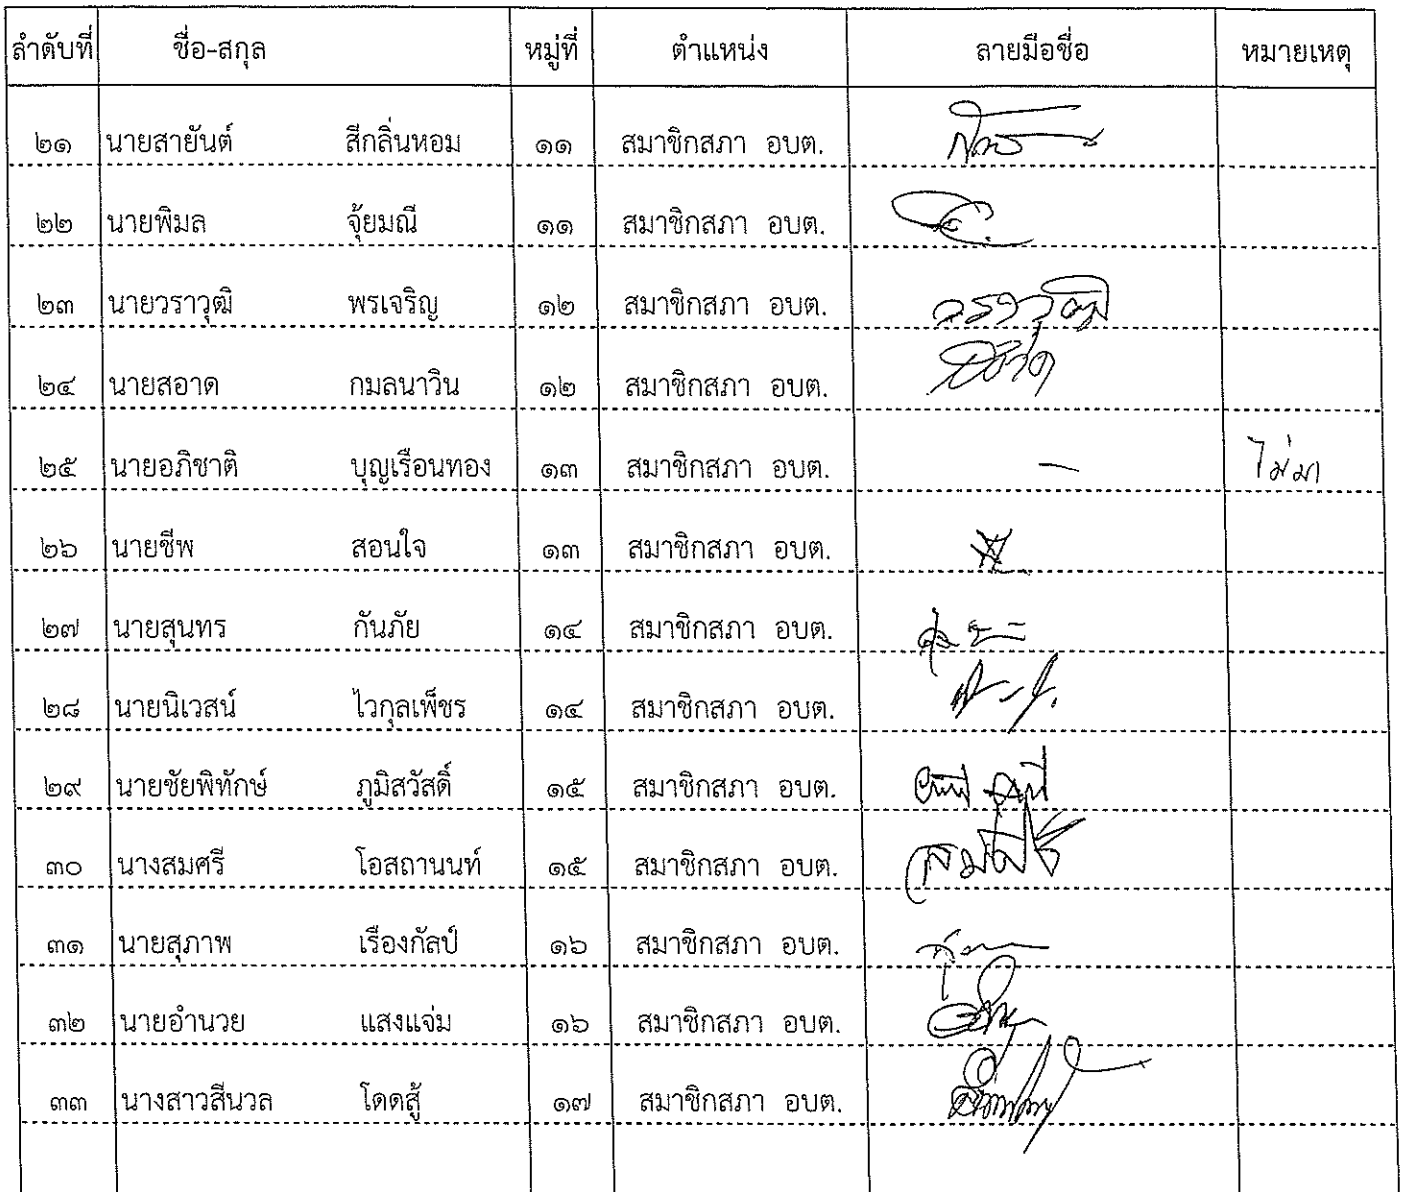 ลำดับที่ ชื่อ-สกุล หมู่ที่ ตำแหน่ง ลายมือชื่อ หมายเหตุ
๒๑ นายสายันต์ สีกลิ่นหอม ๑๑ สมาชิกสภา อบต.
๒๒ นายพิมล จุ้ยมณี ๑๑ สมาชิกสภา อบต.
๒๓ นายวราวุฒิ พรเจริญ ๑๒ สมาชิกสภา อบต. วราวุฒิ
๒๔ นายสอาด กมลนาวิน ๑๒ สมาชิกสภา อบต. สอาด
๒๕ นายอภิชาติ บุญเรือนทอง ๑๓ สมาชิกสภา อบต. - ไม่มา
๒๖ นายชีพ สอนใจ ๑๓ สมาชิกสภา อบต.
๒๗ นายสุนทร กันภัย ๑๔ สมาชิกสภา อบต.
๒๘ นายนิเวสน์ ไวกุลเพ็ชร ๑๔ สมาชิกสภา อบต.
๒๙ นายชัยพิทักษ์ ภูมิสวัสดิ์ ๑๕ สมาชิกสภา อบต.
๓๐ นางสมศรี โอสถานนท์ ๑๕ สมาชิกสภา อบต. สมศรี
๓๑ นายสุภาพ เรืองกัลป์ ๑๖ สมาชิกสภา อบต.
๓๒ นายอำนวย แสงแจ่ม ๑๖ สมาชิกสภา อบต.
๓๓ นางสาวสีนวล โดดสู้ ๑๗ สมาชิกสภา อบต.